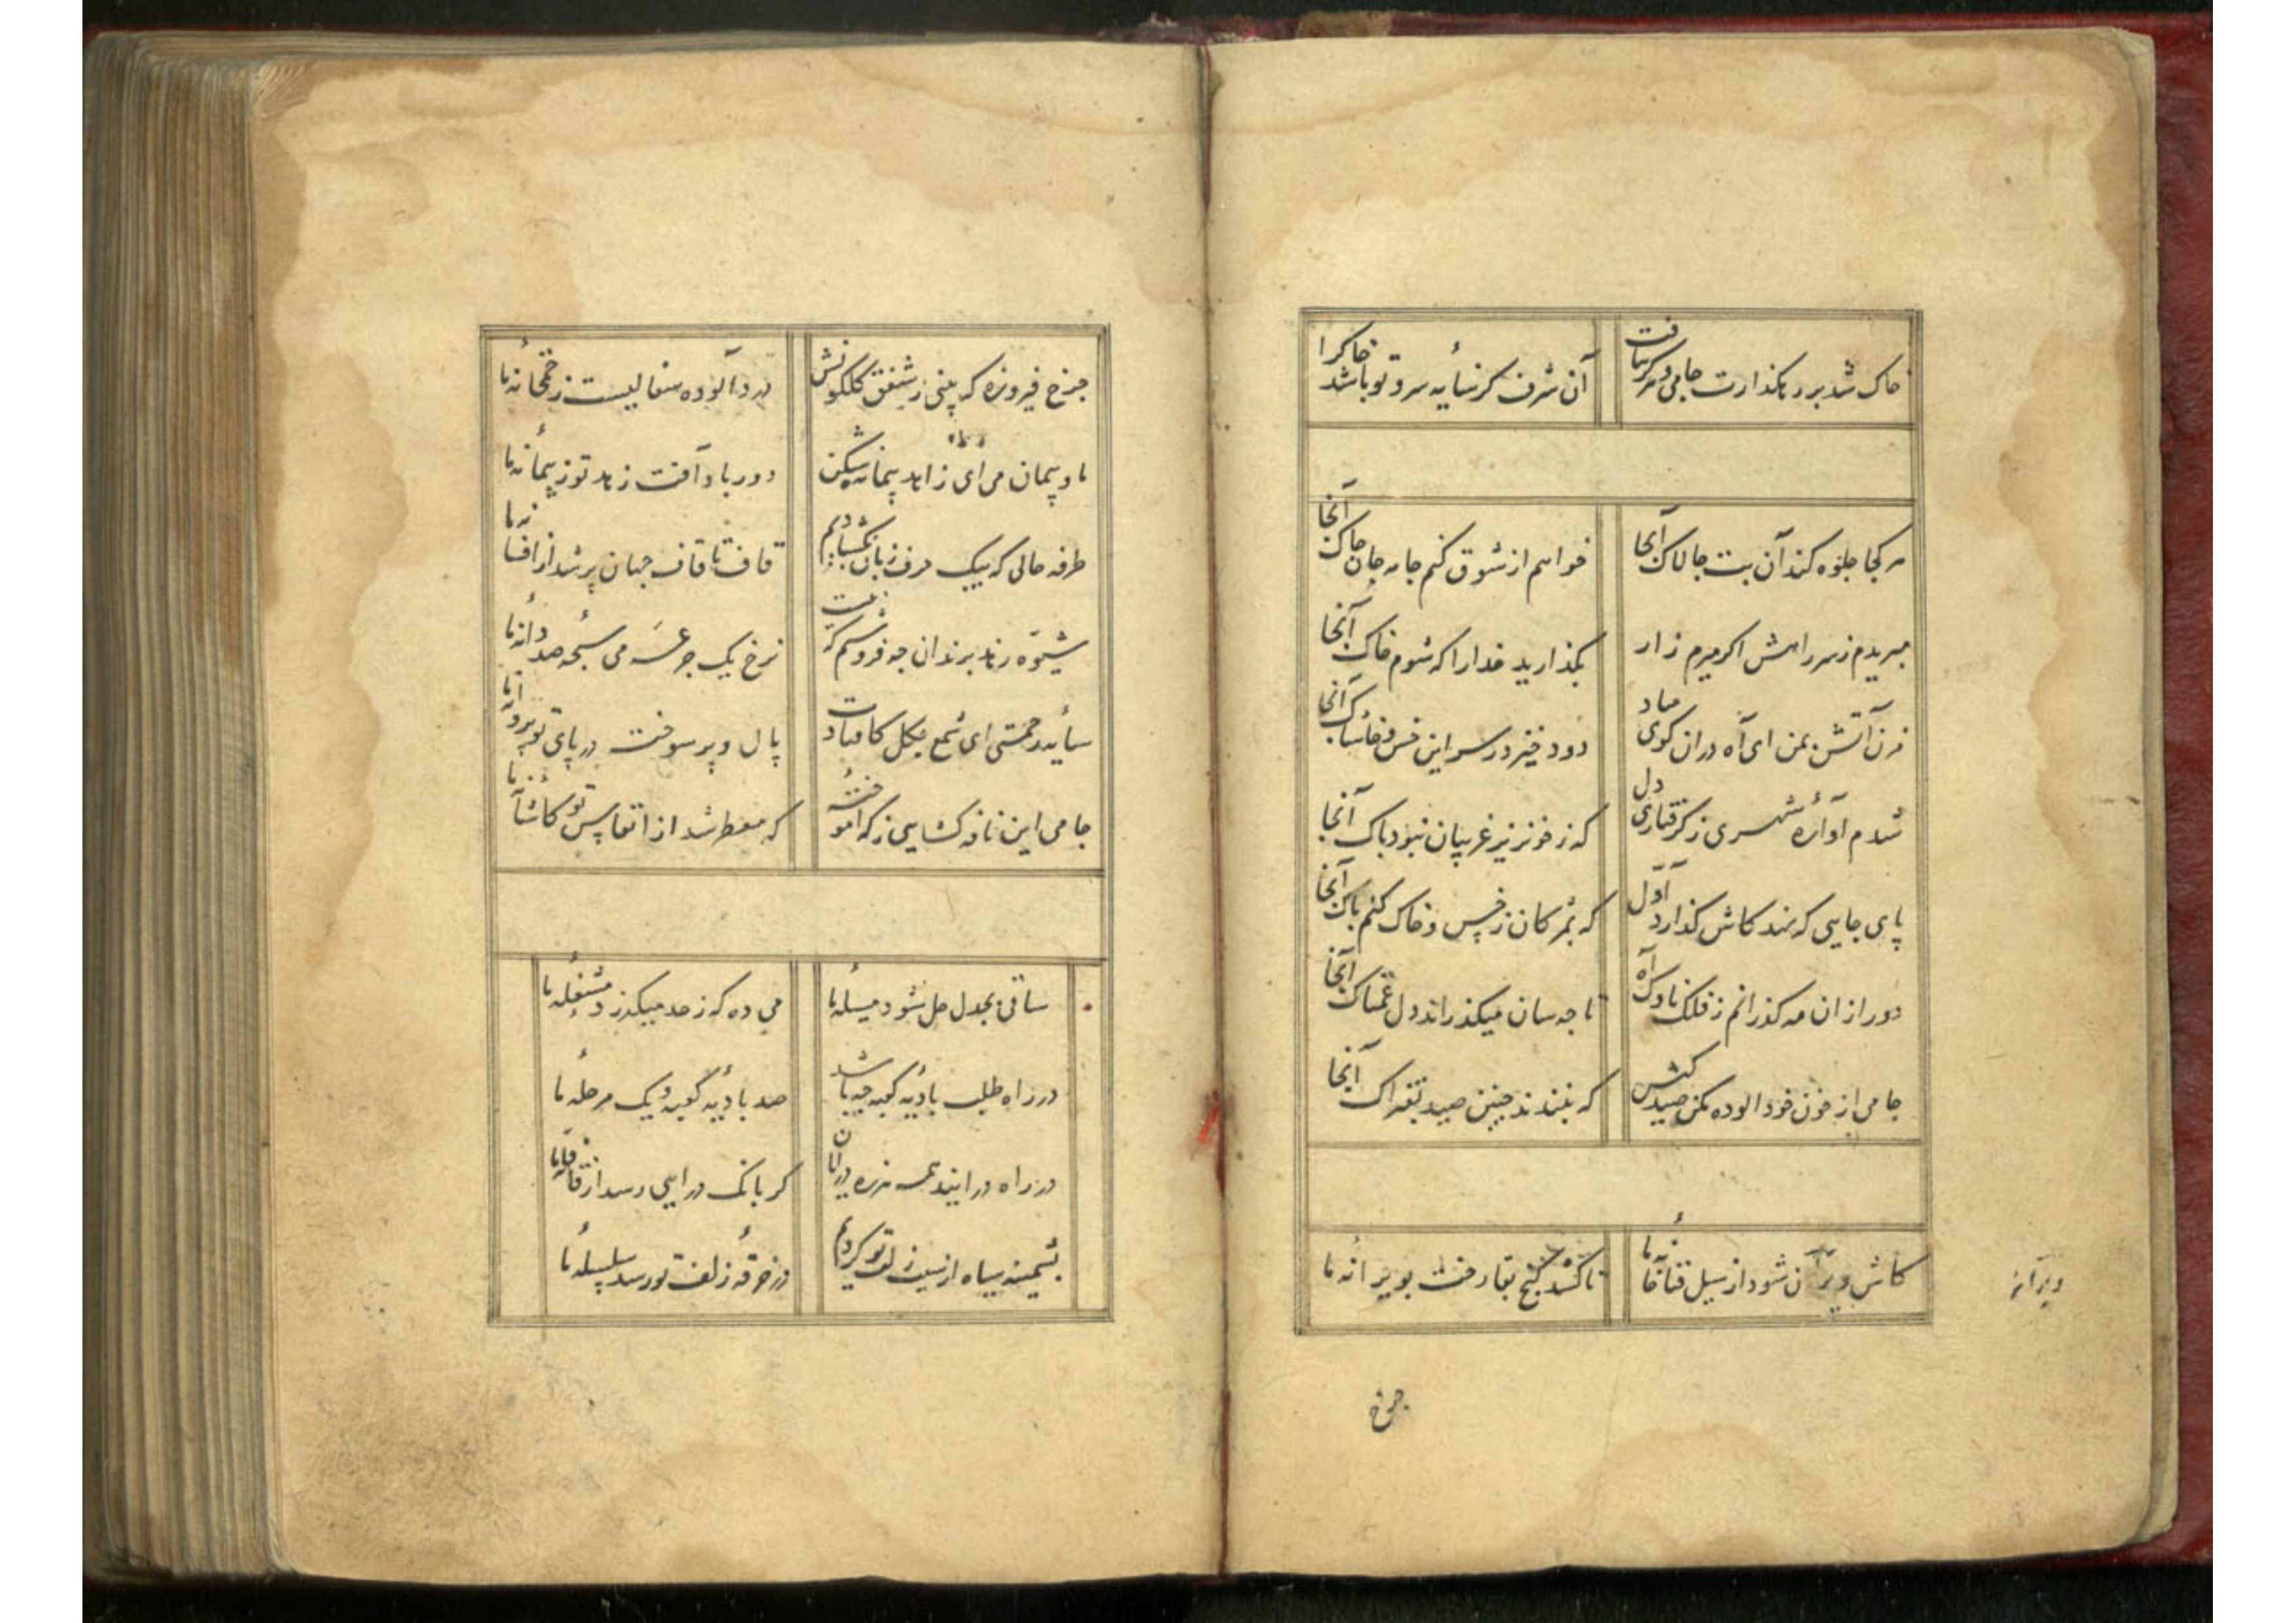 خاک شد بر رهگذارت جامی و هرگز نیافت
آن شرف کز سایه سرو تو باشد خاک را
هر کجا جلوه کند آن بت چالاک آنجا
خواهم از شوق کنم جامه جان چاک آنجا
مبریدم ز سر راهش اگر میرم زار
بگذارید خدا را که شوم خاک آنجا
مزن آتش بمن ای آه در آن کوی مباد
دود خیزد ز سر این خس و خاشاک آنجا
شدم آواره شهری ز گرفتاری دل
که ز خونریز غریبان نبود باک آنجا
پای جایی که نهد کاش گذارد اول
که بمژگان ز خس و خاک کنم پاک آنجا
دور از آن مه گذرانم ز فلک ناوک آه
تا چه سان میگذراند دل غمناک آنجا
جامی از خون خود آلوده مکن صیدکش
که نبندند چنین صید بفتراک آنجا
کاش ویران شود از سیل فنا خانه ما
تا کشد گنج بقا رخت بویرانه ما
ویرانه
چرخ
چرخ فیروزه که بینی ز شفق گلگونش
درد آلوده سفالیست ز خمخانه ما
ما و پیمان می ای زاهد پیمانه شکن
دور باد آفت زهد تو ز پیمانه ما
طرفه حالی که بیک حرف زبان نگشادیم
قاف تا قاف جهان پر شد از افسانه ما
شیوه زهد برندان چه فروشم که
نرخ یک جرعه می سبحه صد دانه ما
سایه رحمتی ای شمع بگل کافتادت
بال و پر سوخت در پای تو پروانه ما
جامی این نافه گشایی ز که آموخته
که معطر شد از انفاس تو کاشانه ما
ساقی بجدل حل نشود مسئله ما
می ده که ز حد میگذرد مشغله ما
در راه طلب بادیه کعبه چه باشد
صد بادیه کعبه و یک مرحله ما
در راه در آیند همه هرزه درایان
گر بانگ درایی رسد از قافله ما
پشمینه سیاه از زلف تو کردیم
در خرقه ز زلف تو رسد سلسله ما